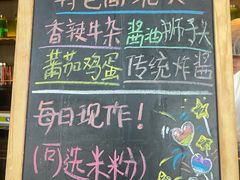 香辣牛杂 酱油狮子头
蕃茄鸡蛋 传统炸酱
每日现作！
(可)选米粉